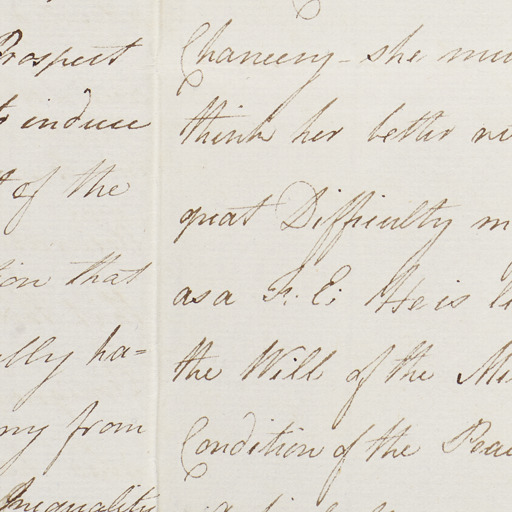 Prospect
to induce
of the
that
ha=
from
Inequality
Chancery - she
think her better
great Difficulty
as a F. E: He is
the Will of the
Condition of the